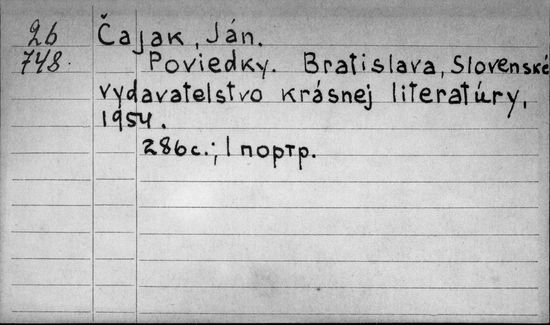 26 Čajak, Ján.
748. Poviedky. Bratislava, Slovenské
vydavatelstvo krásnej literatúry,
1954.
286c.; 1 портр.